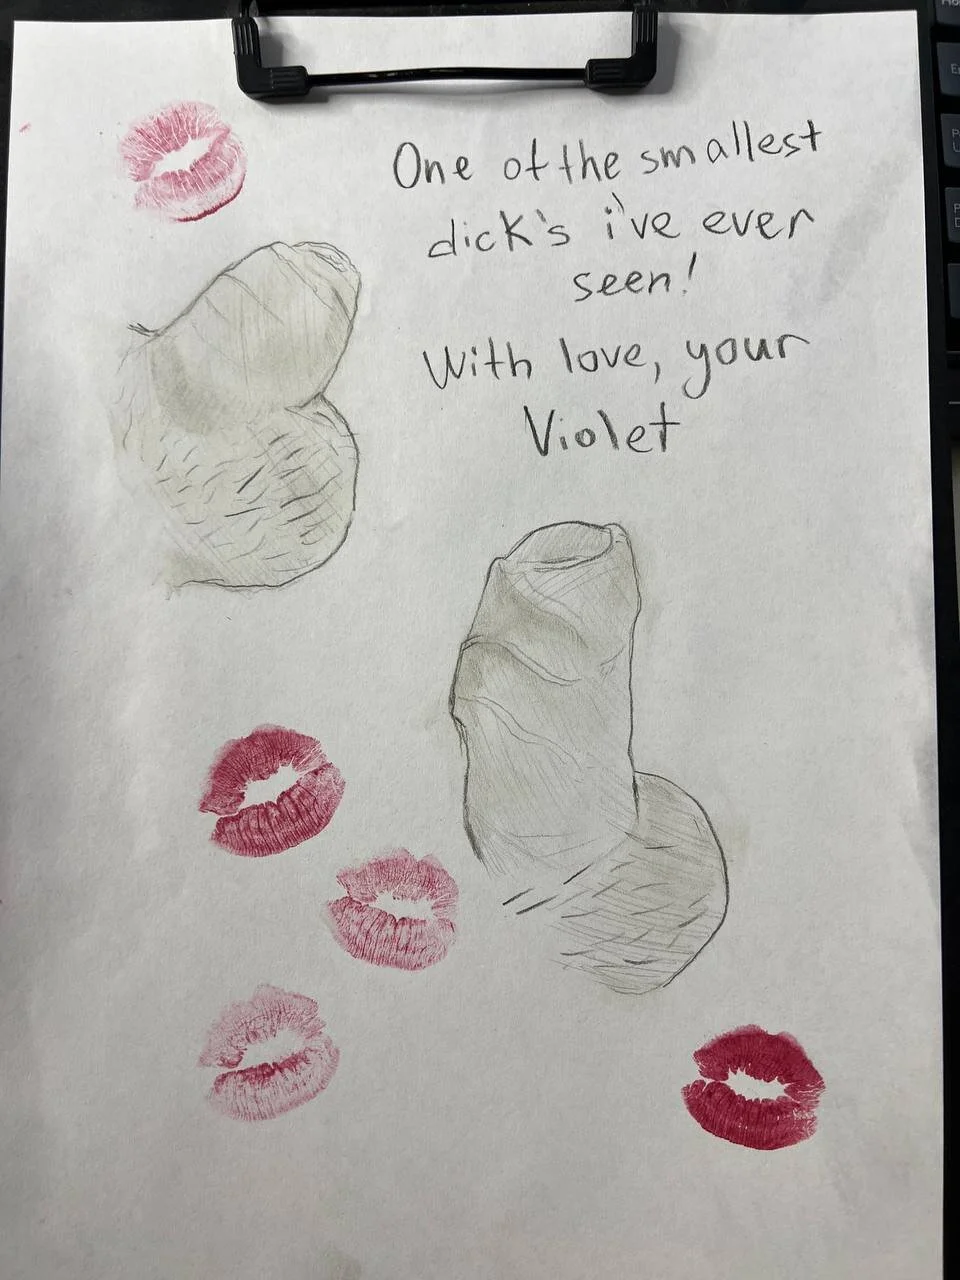 One of the smallest
dick's i've ever
seen!
With love, your
Violet